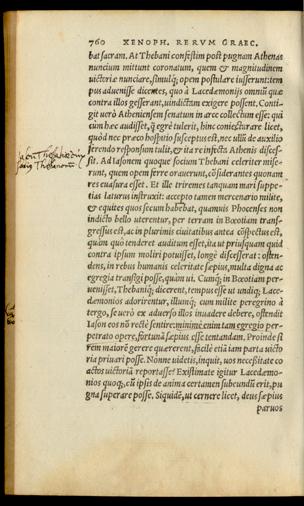 760 XENOPH. RERVM GRAEC.
bat sacram. At Thebani confestim post pugnam Athenas
nuncium mittunt coronatum, quem & magnitudinem
uictoriæ nunciare, simulq́; opem postulare iusserunt: tem
pus aduenisse dicentes, quo à Lacedæmonijs omniū quæ
contra illos gesserant, uindictam exigere possent. Conti-
git uerò Atheniensem senatum in arce collectum esse: qui
cum hæc audisset, q̃ egrè tulerit, hinc coniecturare licet,
quòd nec præco hospitio susceptus est, nec ullū de auxilio
ferendo responsum tulit, & ita re infecta Athenis disces-
sit. Ad Iasonem quoque socium Thebani celeriter mise-
runt, quem opem ferre orauerunt, cōsiderantes quonam
res euasura esset. Et ille triremes tanquam mari suppe-
tias laturus instruxit: accepto tamen mercenario milite,
& equites quos secum habebat, quamuis Phocenses non
indicto bello uterentur, per terram in Bœotiam trans-
gressus est, ac in plurimis ciuitatibus antea cōspectus est,
quàm quò tenderet auditum esset, ita ut priusquam quid
contra ipsum moliri potuisset, longè discesserat: osten-
dens, in rebus humanis celeritate sæpius, multa digna ac
egregia transigi posse, quàm ui. Cumq́; in Bœotiam per-
uenisset, Thebaniq́; dicerent, tempus esse ut undiq; Lace-
dæmonios adorirentur, illumq́; cum milite peregrino à
tergo, se uerò ex aduerso illos inuadere debere, ostendit
Iason eos nō rectè sentire: minimè enim tam egregio per-
petrato opere, fortunā sæpius esse tentandam. Proinde si
rem maiorē gerere quærerent, facilè etiā iam parta uicto
ria priuari posse. Nonne uidetis, inquit, uos necessitate co
actos uictoriā reportasse? Existimate igitur Lacedæmo-
nios quoq;, cū ipsis de anima certamen subeundū erit, pu
gna superare posse. Siquidē, ut cernere licet, deus sæpius
paruos